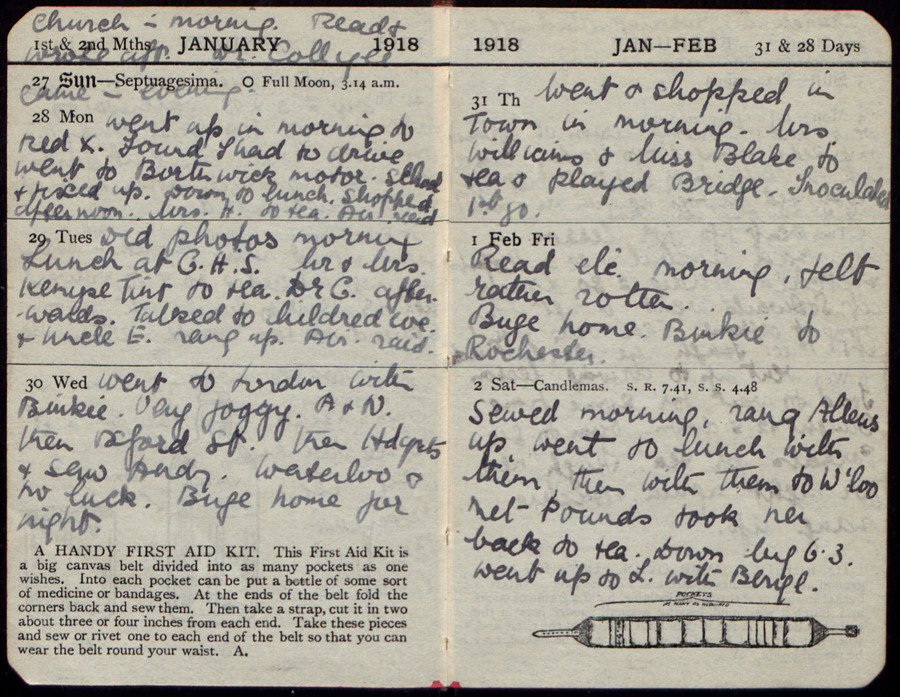 Church – morning. Read &
1st & 2nd Mths JANUARY 1918
wrote aft. Dr. Collyer
27 Sun—Septuagesima. O Full Moon, 3.14 a.m.
came – evening
28 Mon went up in morning to
Red X. Found I had to drive
went to Borthwick motor.
& fixed up. Down to lunch. Shopped
afternoon. Mrs. H. to tea. Air raid
29 Tues Did photos morning
Lunch at G.H.S. Mr & Mrs.
Kempe to tea. Dr C. after-
wards. Talked to Mildred
& Uncle E. rang up. Air raid.
30 Wed went to London with
Binkie. Very foggy. A & N.
then Oxford St. then Hdqrts
& saw Andy. Waterloo &
no luck. Buge home for
night.
A HANDY FIRST AID KIT. This First Aid Kit is
a big canvas belt divided into as many pockets as one
wishes. Into each pocket can be put a bottle of some sort
of medicine or bandages. At the ends of the belt fold the
corners back and sew them. Then take a strap, cut it in two
about three or four inches from each end. Take these pieces
and sew or rivet one to each end of the belt so that you can
wear the belt round your waist. A.
1918 JAN—FEB 31 & 28 Days
31 Th went & shopped in
Town in morning. Mrs
Williams & Miss Blake to
tea & played Bridge. Inoculated
1st go.
1 Feb Fri
Read etc. morning, felt
rather rotten.
Buge home. Binkie to
Rochester.
2 Sat—Candlemas. S. R. 7.41, S. S. 4.48
Sewed morning, rang Allens
up, went to lunch with
them, then with them to W'loo
met Pounds took her
back to tea. Down by 6.3.
went up to L. with Benge.
POCKETS
AS MANY AS REQUIRED